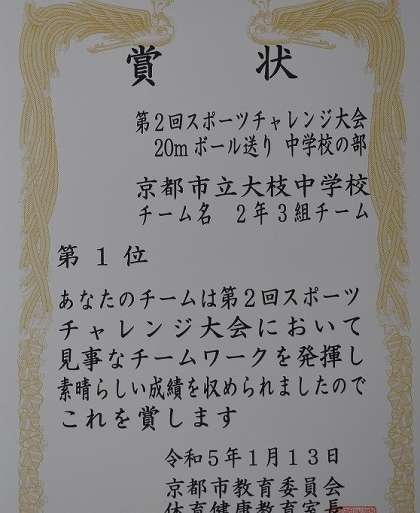 賞状
第2回スポーツチャレンジ大会
20mボール送り 中学校の部
京都市立大枝中学校
チーム名 2年3組チーム
第1位
あなたのチームは第2回スポーツ
チャレンジ大会において
見事なチームワークを発揮し
素晴らしい成績を収められましたので
これを賞します
令和5年1月13日
京都市教育委員会
体育健康教育室長